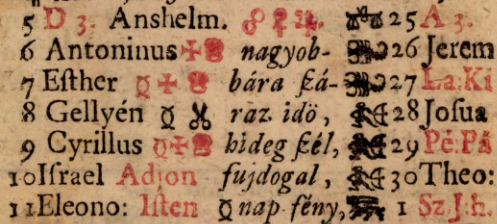 5 D 3. Anshelm. ☍♀♃. 25 A 3.
6 Antoninus nagyob- 26 Jerem
7 Eſther ☿ bára ſzá- 27 La: Ki
8 Gellyén ☿ raz. idö, 28 Joſua
9 Cyrillus ☿ hideg ſzél, 29 Pé: Pá
10 Iſrael Adjon fujdogal, 30 Theo:
11 Eleono: Iſten ☿ nap-fény, 1 Sz. J: h.